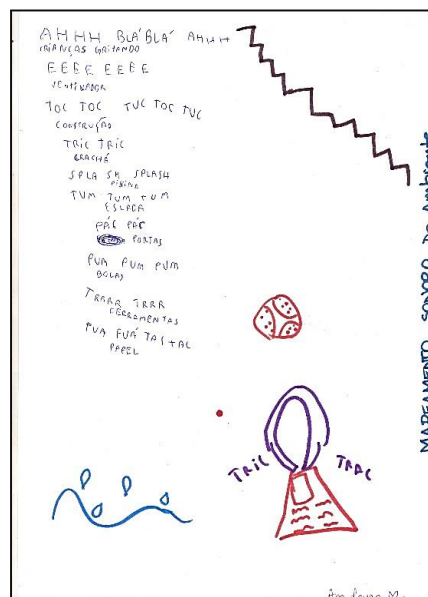 AHHH BLÁ BLÁ AHHH
CRIANÇAS GRITANDO
EEEE EEEE
VENTILADOR
TOC TOC TUC TOC TUC
CONSTRUÇÃO
TRIC TRIC
CRACHÁ
SPLA SH SPLASH
PISCINA
TUM TUM TUM
ESCADA
PÁC PÁC
PORTAS
PUM PUM
BOLAS
TRRR
FERRAMENTAS
PAPEL
TRIC TRAC
MAPEAMENTO SONORO Do Ambiente